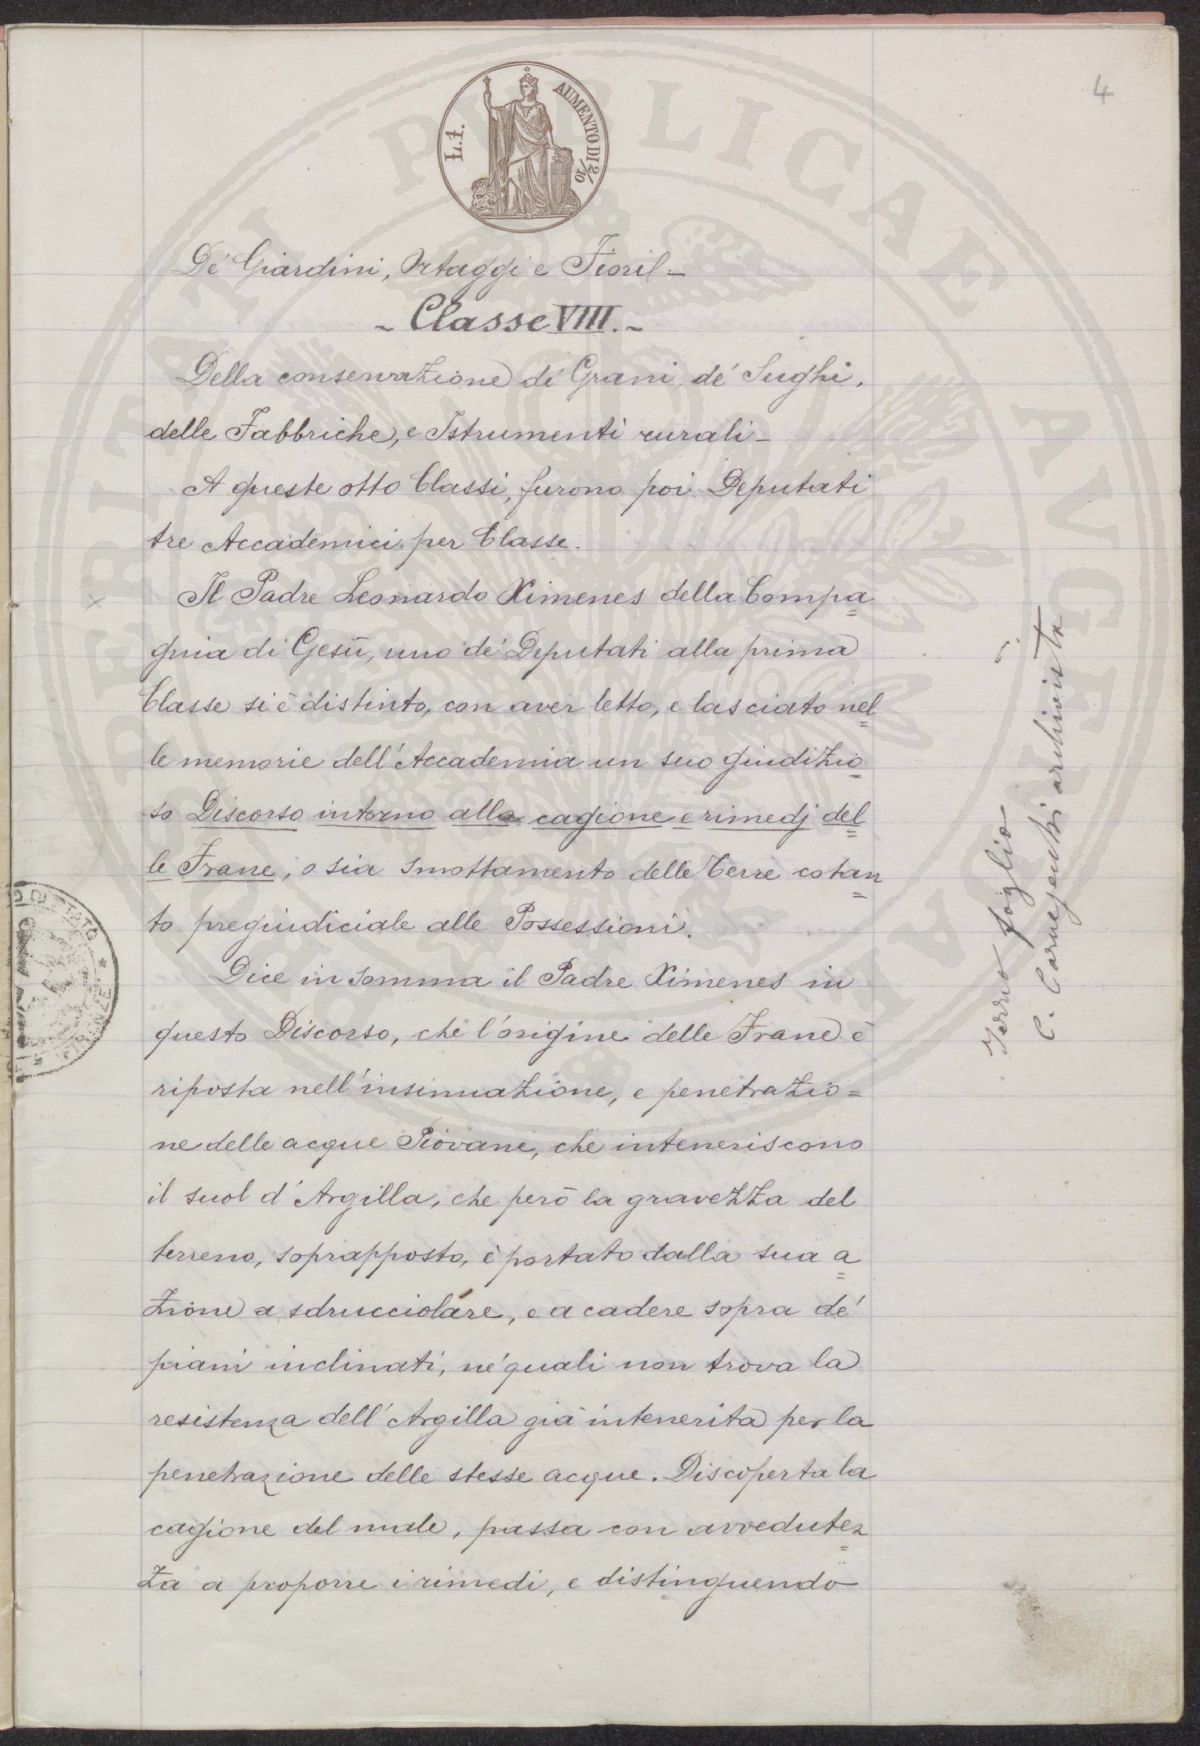 4
L.1.
AUMENTO DI 2/10
De' Giardini, Ortaggi e Fioril_
~ Classe VIII. ~
Della conservazione de' Grani, de' Sughi,
delle Fabbriche, e Istrumenti rurali_
A queste otto Classi, furono poi Deputati
tre Accademici per Classe.
Il Padre Leonardo Ximenes della Compa=
gnia di Gesù, uno de' Deputati alla prima
Classe si è distinto, con aver letto, e lasciato nel=
le memorie dell'Accademia un suo giudizio=
so Discorso intorno alla cagione e rimedj del=
le Frane, o sia smottamento delle Terre cotan=
to pregiudiciale alle Possessioni.
Dice in somma il Padre Ximenes in
questo Discorso, che l'origine delle Frane è
riposta nell'insinuazione, e penetrazio=
ne delle acque Piovane, che inteneriscono
il suol d'Argilla, che però la gravezza del
terreno, soprapposto, è portato dalla sua a=
zione a sdrucciolare, e a cadere sopra de'
piani inclinati, ne' quali non trova la
resistenza dell'Argilla già intenerita per la
penetrazione delle stesse acque. Discoperta la
cagione del male, passa con avvedutez=
za a proporre i rimedi, e distinguendo
Terzo foglio
C. Carnesecchi archivista
DI STATO
PUBLICAE